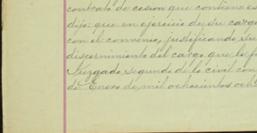 contrato de cesion que contiene es
dijo: que en ejercicio de su cargo
con el convenio, justificando su
discernimiento del cargo que le f
Juzgado segundo de lo civil con
de Enero de mil ochocientos och